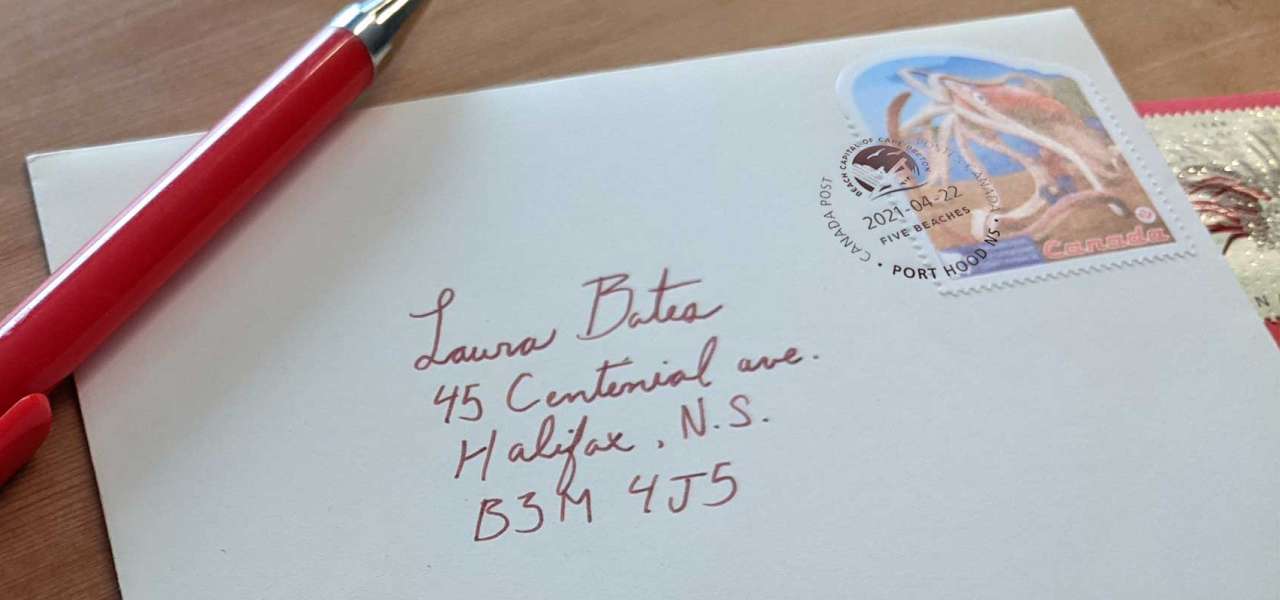 BEACH CAPITAL OF CAPE BRETON
CANADA POST
2021-04-22
FIVE BEACHES
• PORT HOOD NS •
Canada
Laura Bates
45 Centenial ave.
Halifax, N.S.
B3M 4J5